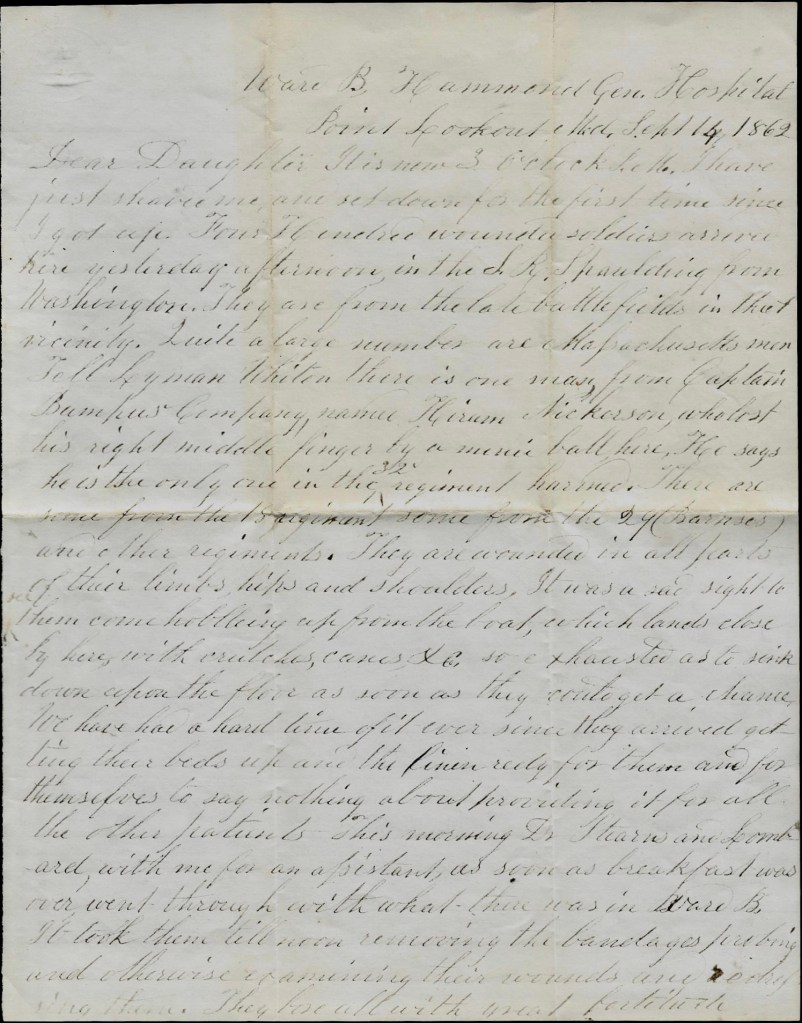 Ward B, Hammond Gen. Hospital
Point Lookout Md, Sept 14, 1862
Dear Daughter It is now 3 o'clock P.M. I have
just shaved me, and set down for the first time since
I got up. Four Hundred wounded soldiers arrived
here yesterday afternoon in the S. R. Spaulding from
Washington. They are from the late battlefields in that
vicinity. Quite a large number are Massachusetts men
Tell Lyman Whiten there is one man, from Captain
Bumpus' Company, named Hiram Nickerson, who lost
his right middle finger by a minie ball here. He says
he is the only one in the 32 regiment harmed. There are
some from the 18 regiment some from the 29 (Barnses)
and other regiments. They are wounded in all parts
of their limbs, hips and shoulders. It was a sad sight to
see them come hobbling up from the boat, which lands close
by here, with crutches, canes, &c. so exhausted as to sink
down upon the floor as soon as they could get a chance,
We have had a hard time of it ever since they arrived get-
ting their beds up and the linin redy for them and for
themselves to say nothing about providing it for all
the other patients - This morning Dr Stearns and Lomb-
ard, with me for an assistant, as soon as breakfast was
over went through with what there was in Ward B.
It took them till noon removing the bandages probing
and otherwise examining their wounds and
ing them. They bore all with great fortitude